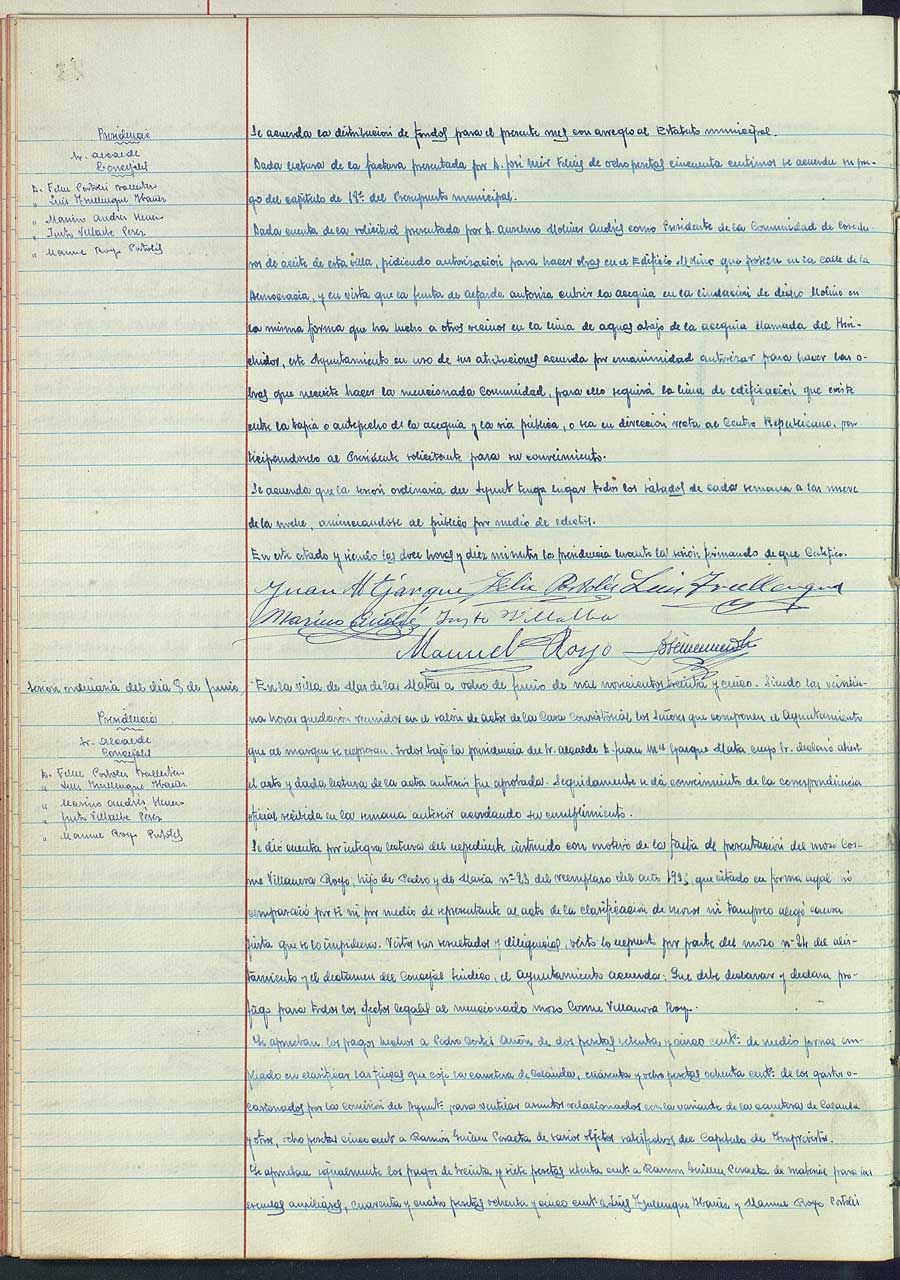 Presidencia
Sr. Alcalde
Concejales
D. Felix Portolés Ballestero
" Luis Zuellenque Ibañez
" Marino Andrés
" Justo Villalba Pérez
" Manuel Royo Portolés
Se acuerda la distribucion de fondos para el presente mes con arreglo al Estatuto municipal.
Dada lectura de la factura presentada por D. José Mir de ocho pesetas cincuenta centimos se acuerda su pa-
go del capitulo de 18º del Presupuesto municipal.
Dada cuenta de la solicitud presentada por D. Anselmo Moliner Andrés como Presidente de la Comunidad de
de aceite de esta villa, pidiendo autorizacion para hacer obras en el Edificio Molino que poseen en la Calle de la
Democracia, y en vista que la Junta de autoriza cubrir la acequia en la de dicho Molino en
la misma forma que ha hecho a otros vecinos en la linea de aguas abajo de la acequia llamada del Hin-
chidor, este Ayuntamiento en uso de sus atribuciones acuerda por unanimidad autorizar para hacer las o-
bras que necesite hacer la mencionada Comunidad, para ello seguirá la linea de edificación que existe
entre la tapia o antepecho de la acequia y la via pública, o sea en dirección recta al Centro Republicano, par-
ticipandoselo al Presidente solicitante para su conocimiento.
Se acuerda que la sesion ordinaria del Ayunt tenga lugar todos los sábados de cada semana a las nueve
de la noche, anunciandose al público por medio de edictos.
En este estado y siendo las doce horas y diez minutos la presidencia levanto la sesión firmando de que Certifico.
Juan Mª Gargue Felix Portolés Luis Zuellenque
Marino Andrés Justo Villalba
Manuel Royo
Sesion ordinaria del dia 8 de Junio
Presidencia
Sr. Alcalde
Concejales
D. Felix Portolés Ballestero
" Luis Zuellenque Ibañez
" Marino Andrés
" Justo Villalba Pérez
" Manuel Royo Portolés
En la villa de Mas de las Matas a ocho de Junio de mil novecientos treinta y cinco. Siendo las veintiu-
na horas quedaron reunidos en el salón de actos de la Casa Consistorial los Señores que componen el Ayuntamiento
que al margen se expresan. todos bajo la presidencia del Sr. Alcalde D. Juan Mª Gargue Mata cuyo Sr. declaró abierto
el acto y dada lectura de la acta anterior fue aprobada. Seguidamente se dá conocimiento de la correspondencia
oficial recibida en la semana anterior acordando su cumplimiento.
Se dió cuenta por integra lectura del expediente instruido con motivo de la falta de presentacion del mozo Cos-
me Villanova Royo, hijo de Pedro y de Maria nº 23 del reemplazo del año 1935, que citado en forma legal ni
compareció por si ni por medio de representante al acto de la clasificacion de mozos ni tampoco alegó causa
justa que se lo impidiera. Vistos sus resultados y diligencias, visto lo expuesto por parte del mozo nº 24 del alis-
tamiento y el dictamen del Concejal Sindico, el Ayuntamiento acuerda: Que debe declarar y declara pro-
fugo para todos los efectos legales al mencionado mozo Cosme Villanova Royo.
Se aprueban los pagos hechos a Pedro Cortés Añón de dos pesetas setenta y cinco centˢ de medio jornal em-
pleado en clasificar las fincas que coje la carretera de Calanda, cuarenta y ocho pesetas ochenta centˢ de los gastos o-
casionados por la comisión del Ayuntº para ventilar asuntos relacionados con la variante de la carretera de Calanda
y otros, ocho pesetas cinco cent a Ramón Guillen Peralta de varios objetos del Capitulo de Imprevistos.
Se aprueban igualmente los pagos de treinta y siete pesetas setenta cent a Ramon Guillen Peralta de material para las
escuelas auxiliares, cuarenta y cuatro pesetas ochenta y cinco cent a Luis Zuellenque Ibañez y Manuel Royo Portolés